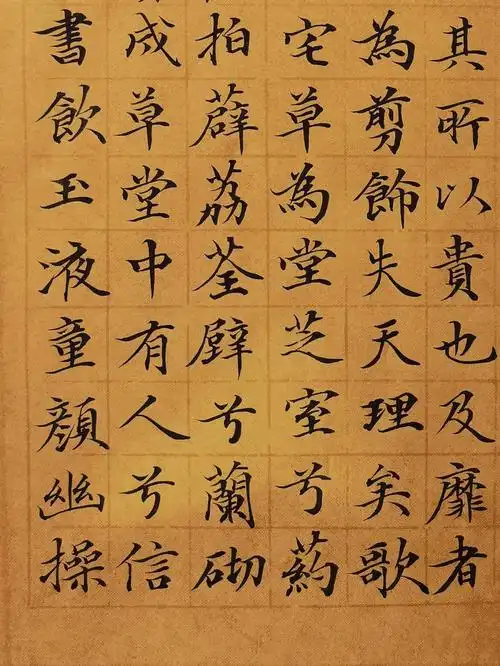 其所以貴也及靡者
為剪飾失天理矣歌
宅草為堂芝室兮葯
拍薜荔荃壁兮蘭砌
成草堂中有人兮信
書飲玉液童顏幽操